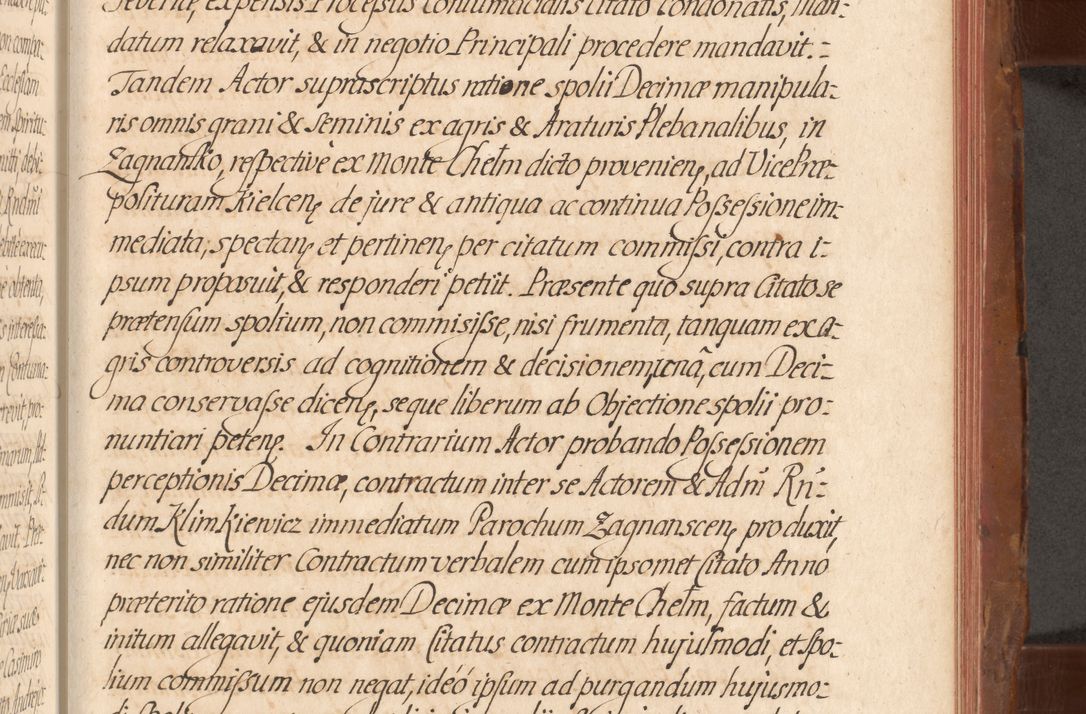 Severitæ, expensis Processus Contumacialis Citato Condonatis, Man-
datum relaxavit, & in negotio Principali procedere mandavit.
Tandem Actor suprascriptus ratione spolii Decimæ manipula-
ris omnis grani & seminis ex agris & Araturis Plebanalibus, in
Zagnansko, respectivè ex Monte Chełm dicto provenien, ad VicePræ-
posituram Kielcen de jure & antiqua ac continua Possessione im-
mediata, spectan et pertinen per citatum commissi, contra i-
psum proposuit, & responderi petiit. Præsente quo supra Citato se
prætensum spolium, non commisisse, nisi frumenta, tanquam ex a-
gris controversis ad cognitionem & decisionem, unã, cum Deci-
ma conservasse dicen, seque liberum ab Objectione spolii pro-
nuntiari peten. In Contrarium Actor probando Possessionem
perceptionis Decimæ, contractum inter se Actorem & Adm̃ Rñ-
dum Klimkiewicz immediatum Parochum Zagnanscen produxit,
nec non similiter Contractum verbalem cum ipsomet Citato Anno
præterito ratione ejusdem Decimæ ex Monte Chełm, factum &
initum allegavit, & quoniam Citatus contractum hujusmodi, et spo-
lium commissum non negat, ideó ipsum ad purgandum hujusmo-